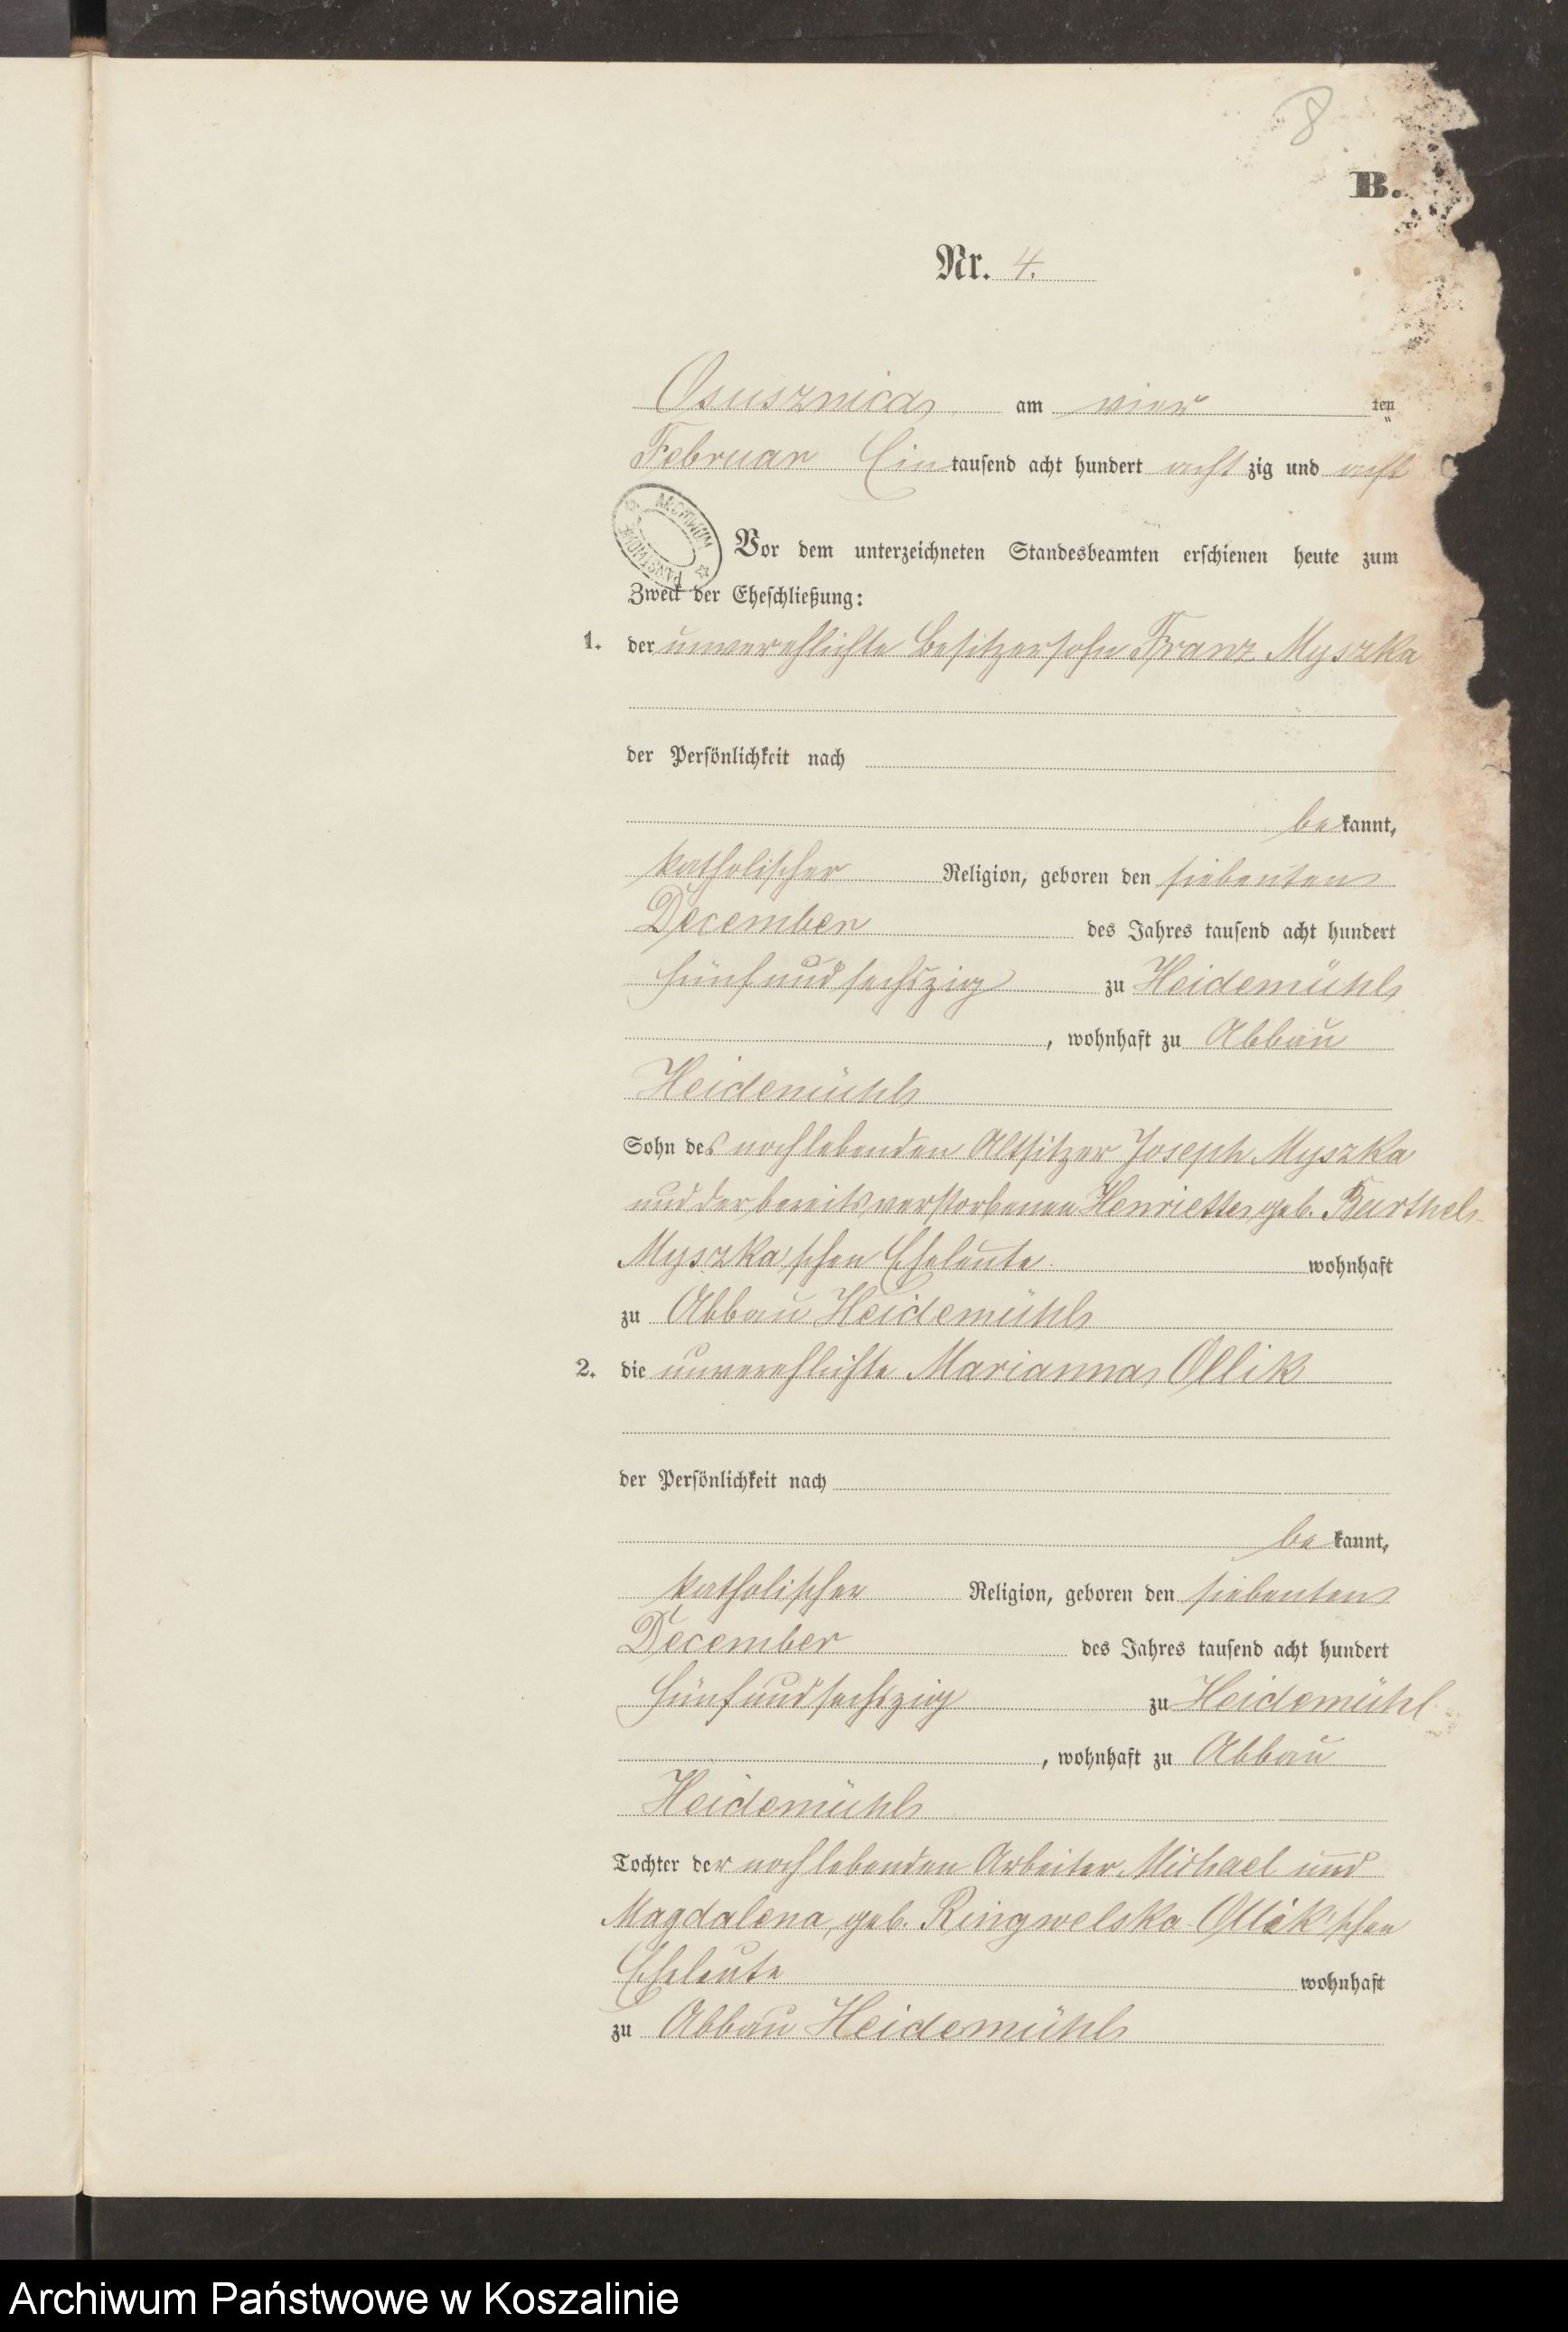 8
B.
Nr. 4.
Osusznica am vier ten
Februar Ein tausend acht hundert acht zig und acht
ARCHIWUM PAŃSTWOWE
Vor dem unterzeichneten Standesbeamten erschienen heute zum
Zweck der Eheschließung:
1. der unverehlichte Besitzersohn Franz Myszka
der Persönlichkeit nach
be kannt,
katholischer Religion, geboren den siebenten
December des Jahres tausend acht hundert
fünf und sechszig zu Heidemühl
, wohnhaft zu Abbau
Heidemühl
Sohn des noch lebenden Altsitzer Joseph Myszka
und der bereits verstorbenen Henriette geb. Barthel
Myszka'schen Eheleute wohnhaft
zu Abbau Heidemühl
2. die unverehlichte Marianna Ollik
der Persönlichkeit nach
be kannt,
katholischer Religion, geboren den siebenten
December des Jahres tausend acht hundert
fünf und sechszig zu Heidemühl
, wohnhaft zu Abbau
Heidemühl
Tochter der noch lebenden Arbeiter Michael und
Magdalena, geb. Ringwelska Ollik'schen
Eheleute wohnhaft
zu Abbau Heidemühl
Archiwum Państwowe w Koszalinie